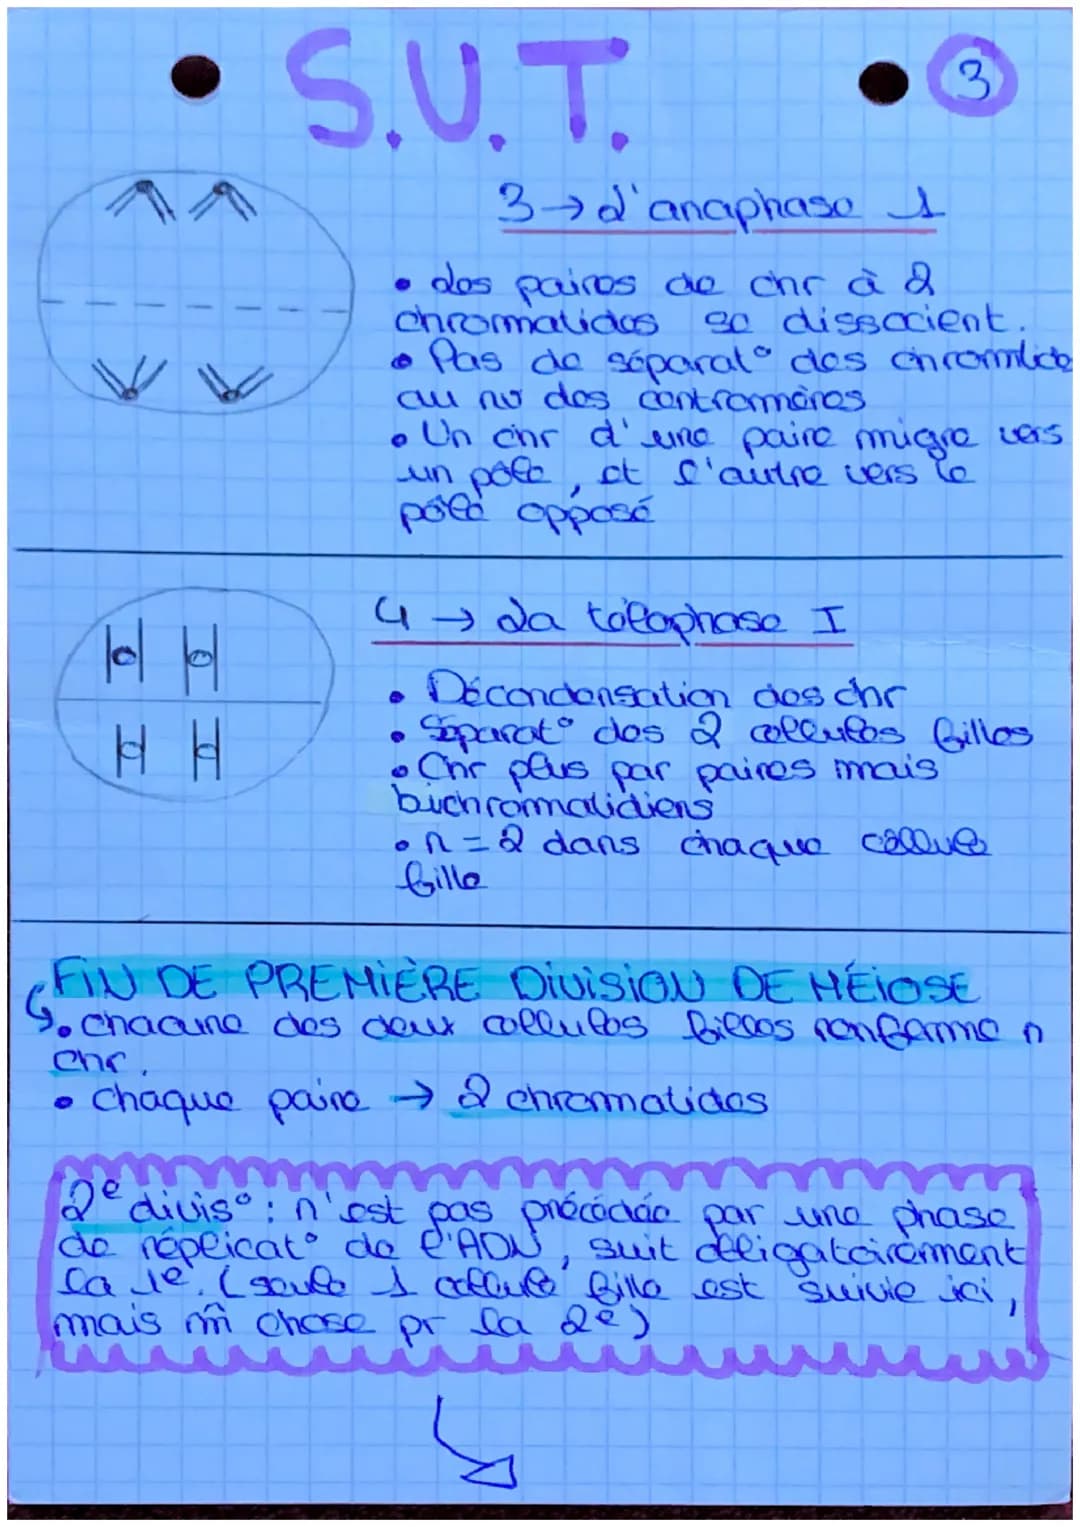 S.V.T.
3
3 → L'anaphase 1
• les paires de chr à 2
chromatides se dissocient.
• Pas de séparat° des chromtides
au nv des centromères
• Un chr d'une paire migre vers
un pôle, et l'autre vers le
pôle opposé
4 → La télophase I
• Décondensation des chr
• Séparat° des 2 cellules filles
• Chr plus par paires mais
bichromatidiens
• n = 2 dans chaque cellule
fille
FIN DE PREMIÈRE DIVISION DE MÉIOSE
• chacune des deux cellules filles renferme n
chr.
• chaque paire → 2 chromatides
2e divis° : n'est pas précédée par une phase
de réplicat° de l'ADN, suit obligatoirement
la 1e. (seule 1 cellule fille est suivie ici,
mais m̂ chose pr la 2e)